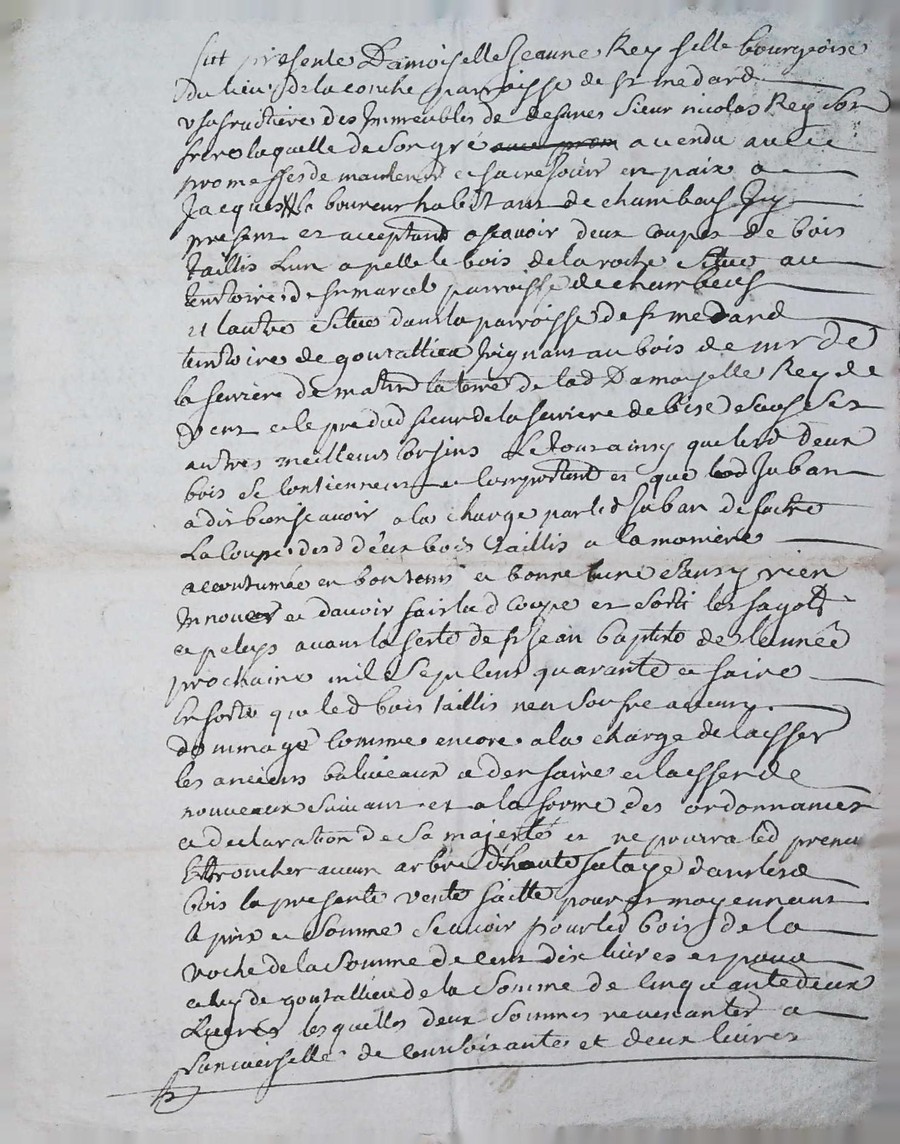 fut presente Damoiselle Jeanne Rey fille bourgeoise
du lieu de la conche parroisse de st medard
usufructiere des Immeubles de deffunct Sieur nicolas Rey son
frere laquelle de son gré a vendu avec
promesses de maintenir et faire jouir en paix a
Jacques boureur habitant de chambeuf Icy
present et acceptant ascavoir deux coupes de bois
taillis Lune apelle le bois de la roche Situé au
territoire de st marcel parroisse de chambeuf
et lautre Situé dans la parroisse de st medard
territoire de goutallieu Joignant au bois de mr de
la ferriere de matin la terre de lad Damoiselle Rey de
vent et le pre dud sieur de la ferriere de bise Sauf Ses
autres meilleurs confins Et tout ainsy que lesd deux
bois Se contiennent et comportent et que led Juban
a dit bien scavoir a la charge par led Juban de faire
La coupe desd deux bois taillis a la maniere
accoutumée en bon tems et bonne lune Sans y rien
Innover et davoir fait lad Coupe et sorti les fagots
et avant la feste de st Jean baptiste de lannée
prochaine mil Sept cent quarante et faire
En sorte que led bois taillis nen Soufre aucun
dommage comme encore a la charge de laisser
les anciens baliveaux et den faire et laisser de
nouveaux Suivant et a la forme des ordonnances
et declaration de Sa majesté et ne pourra led preneur
Ettroncher aucun arbre d'haute futaye dans lesd
bois la presente vente faitte pour et moyennant
le prix et Somme Scavoir pour led bois de la
roche de la Somme de cent dix livres et pour
celuy de goutallieu de la Somme de cinquante deux
Livres lesquelles deux Sommes revenantes a
Luniverselle de cent soixante et deux livres